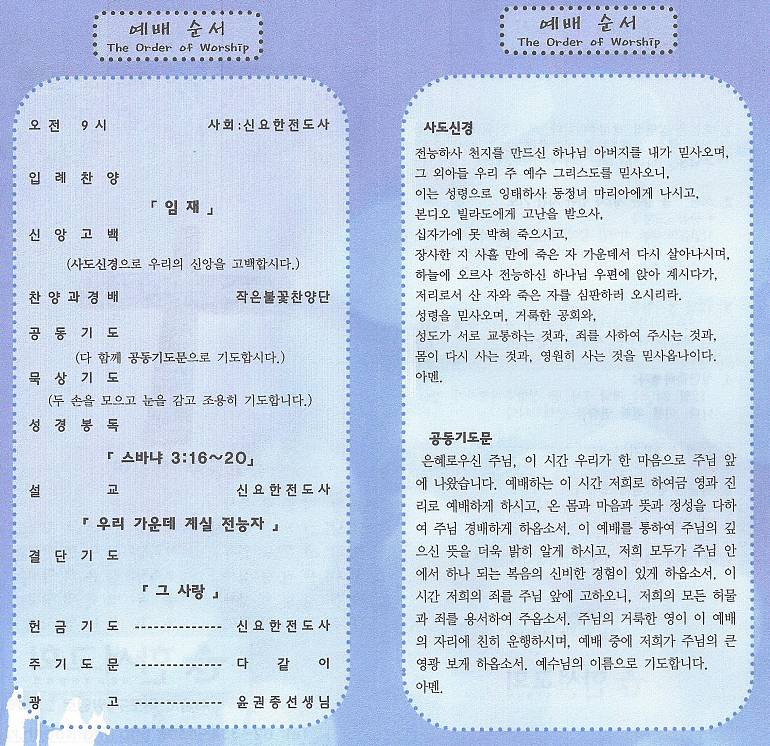 예배 순서
The Order of Worship
오전 9시 사회:신요한전도사
입례찬양
「임재」
신앙고백
(사도신경으로 우리의 신앙을 고백합시다.)
찬양과경배 작은불꽃찬양단
공동기도
(다 함께 공동기도문으로 기도합시다.)
묵상기도
(두 손을 모으고 눈을 감고 조용히 기도합니다.)
성경봉독
「스바냐 3:16~20」
설 교 신요한전도사
「우리 가운데 계실 전능자」
결단기도
「그 사랑」
헌금기도 -------------- 신요한전도사
주기도문 -------------- 다 같 이
광 고 -------------- 윤권증선생님
예배 순서
The Order of Worship
사도신경
전능하사 천지를 만드신 하나님 아버지를 내가 믿사오며,
그 외아들 우리 주 예수 그리스도를 믿사오니,
이는 성령으로 잉태하사 동정녀 마리아에게 나시고,
본디오 빌라도에게 고난을 받으사,
십자가에 못 박혀 죽으시고,
장사한 지 사흘 만에 죽은 자 가운데서 다시 살아나시며,
하늘에 오르사 전능하신 하나님 우편에 앉아 계시다가,
저리로서 산 자와 죽은 자를 심판하러 오시리라.
성령을 믿사오며, 거룩한 공회와,
성도가 서로 교통하는 것과, 죄를 사하여 주시는 것과,
몸이 다시 사는 것과, 영원히 사는 것을 믿사옵나이다.
아멘.
공동기도문
은혜로우신 주님, 이 시간 우리가 한 마음으로 주님 앞
에 나왔습니다. 예배하는 이 시간 저희로 하여금 영과 진
리로 예배하게 하시고, 온 몸과 마음과 뜻과 정성을 다하
여 주님 경배하게 하옵소서. 이 예배를 통하여 주님의 깊
으신 뜻을 더욱 밝히 알게 하시고, 저희 모두가 주님 안
에서 하나 되는 복음의 신비한 경험이 있게 하옵소서. 이
시간 저희의 죄를 주님 앞에 고하오니, 저희의 모든 허물
과 죄를 용서하여 주옵소서. 주님의 거룩한 영이 이 예배
의 자리에 친히 운행하시며, 예배 중에 저희가 주님의 큰
영광 보게 하옵소서. 예수님의 이름으로 기도합니다.
아멘.